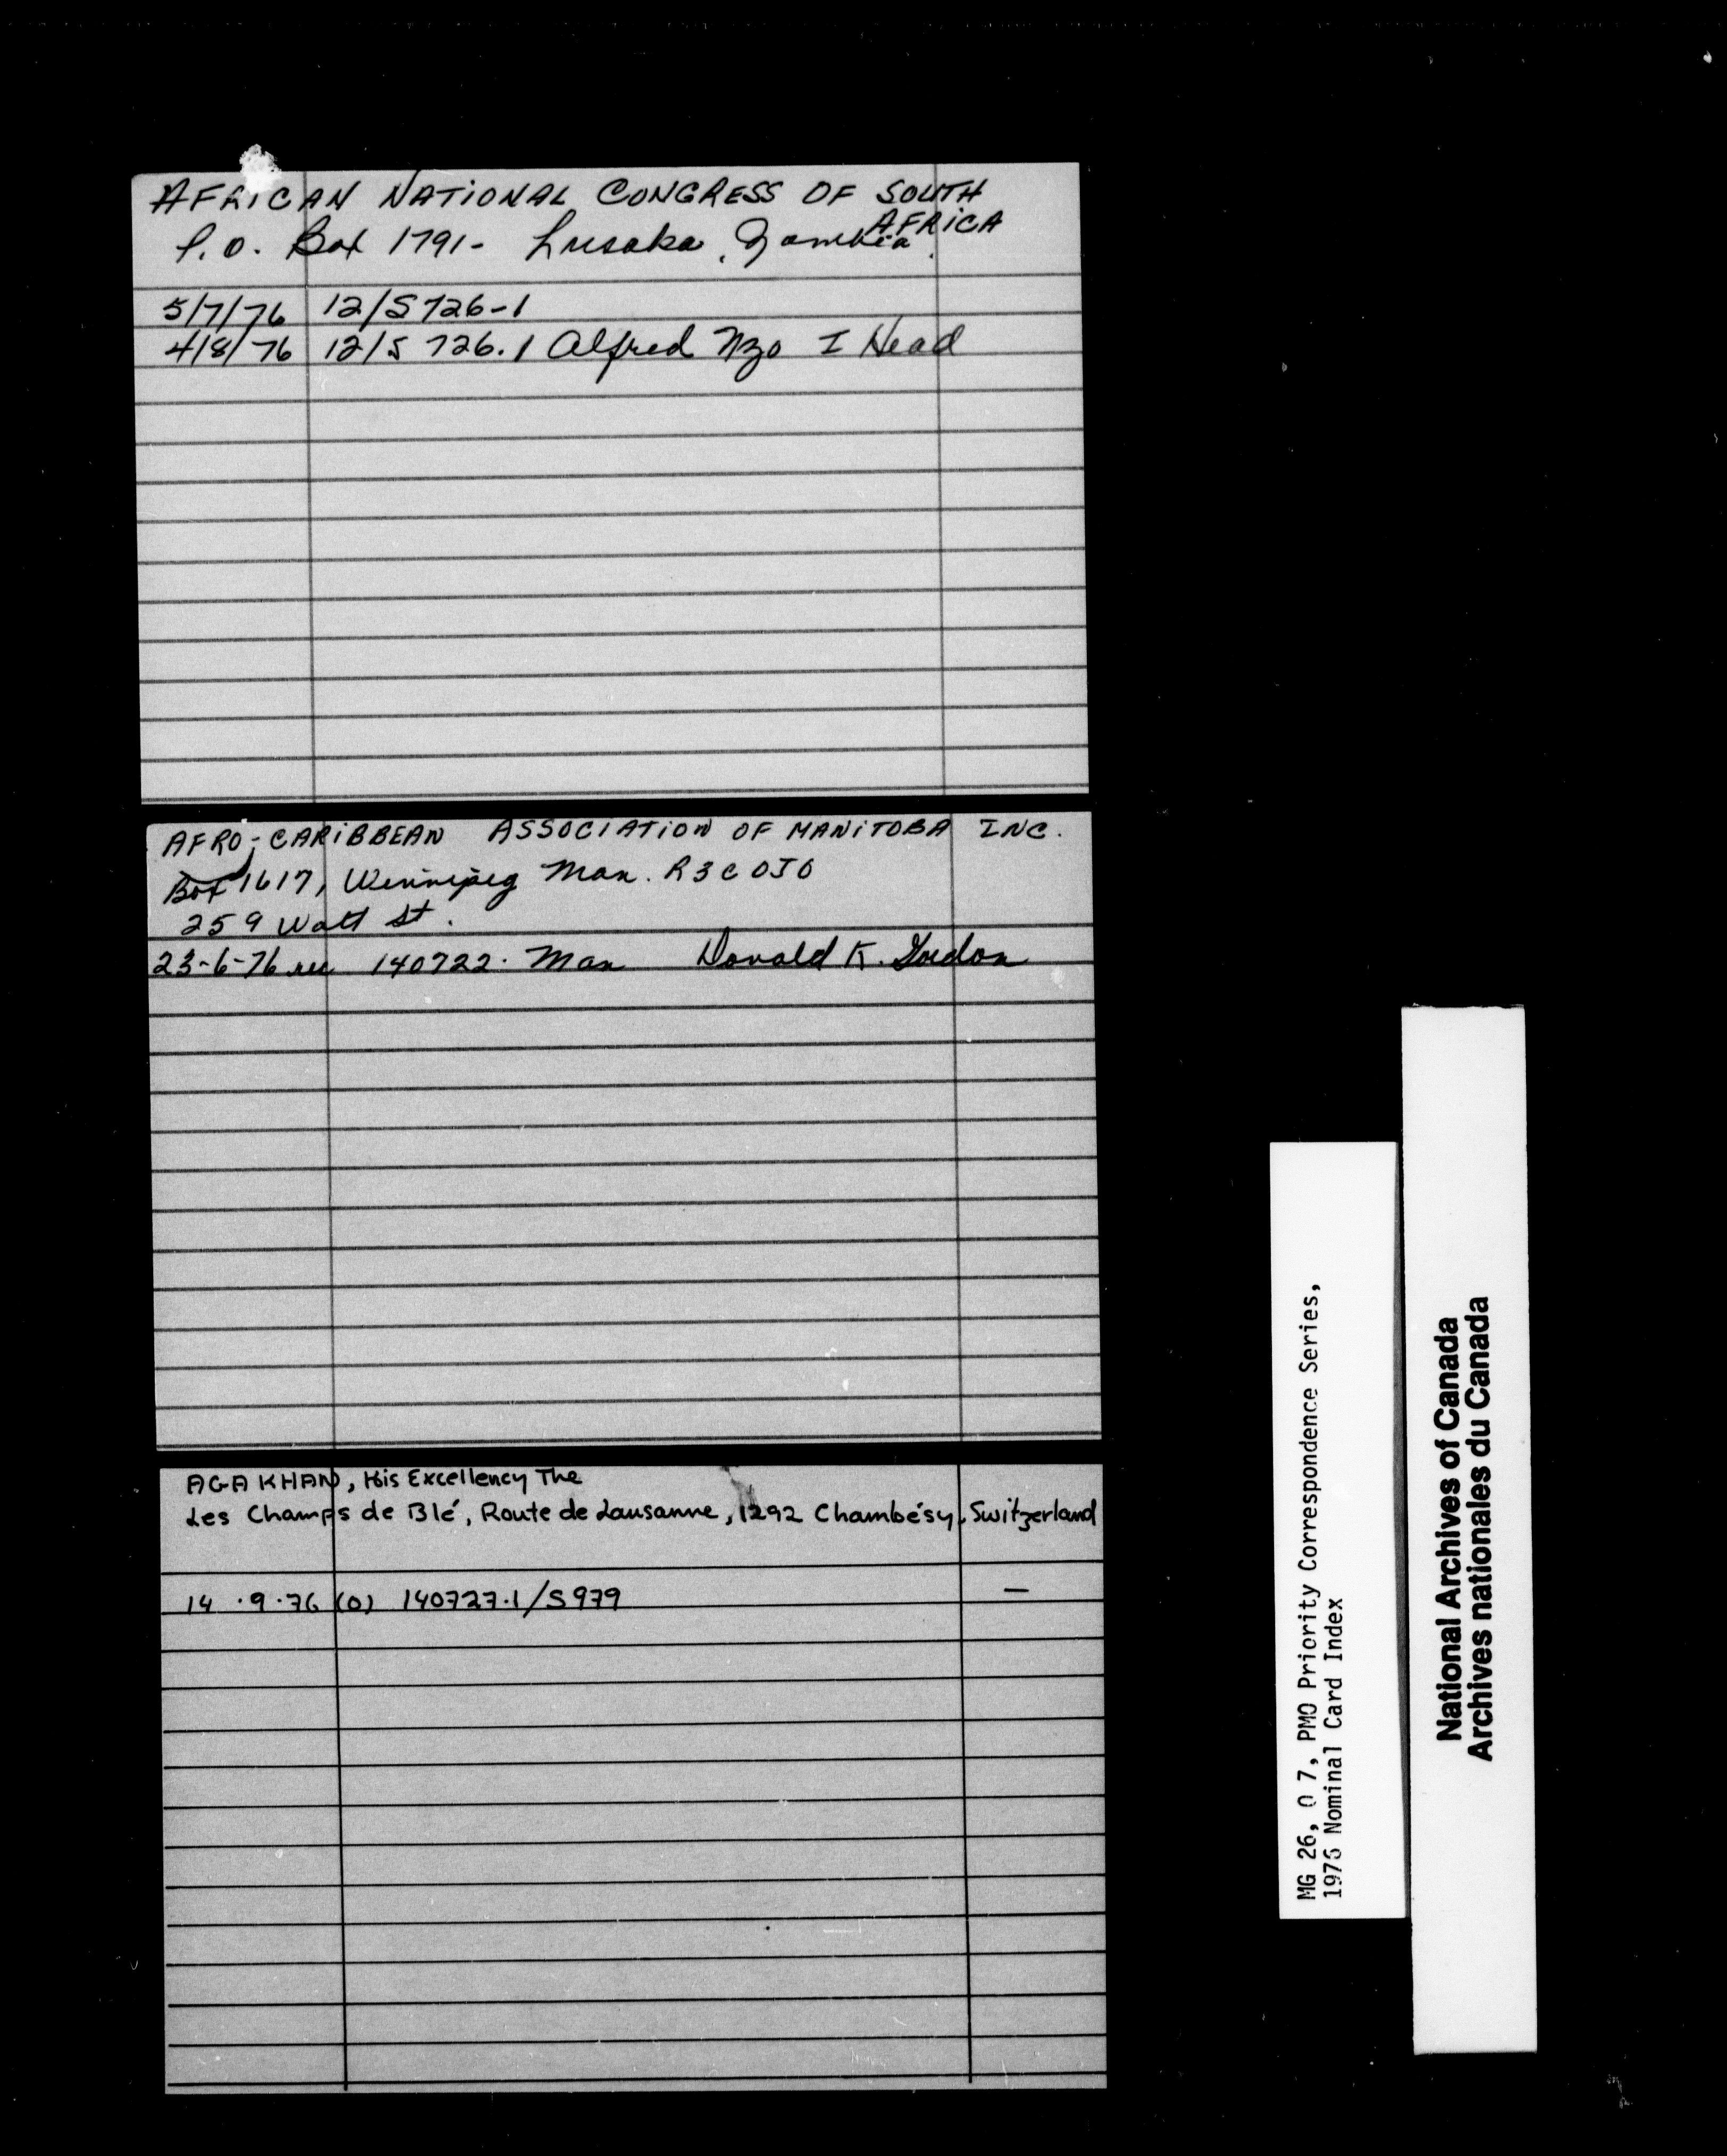 AFRICAN NATIONAL CONGRESS OF SOUTH
AFRICA
P.O. Box 1791- Lusaka, Zambia.
5/7/76 12/S726-1
4/8/76 12/S 726.1 Alfred Nzo I Head
AFRO-CARIBBEAN ASSOCIATION OF MANITOBA INC.
Box 1617, Winnipeg Man. R3C 0J0
259 Watt St.
23-6-76 140722. Man Donald K. Gordon
AGA KHAN, His Excellency The
Les Champs de Blé, Route de Lausanne, 1292 Chambésy, Switzerland
14 .9.76 (0) 140727.1/S979 —
MG 26, O 7, PMO Priority Correspondence Series,
1976 Nominal Card Index
National Archives of Canada
Archives nationales du Canada